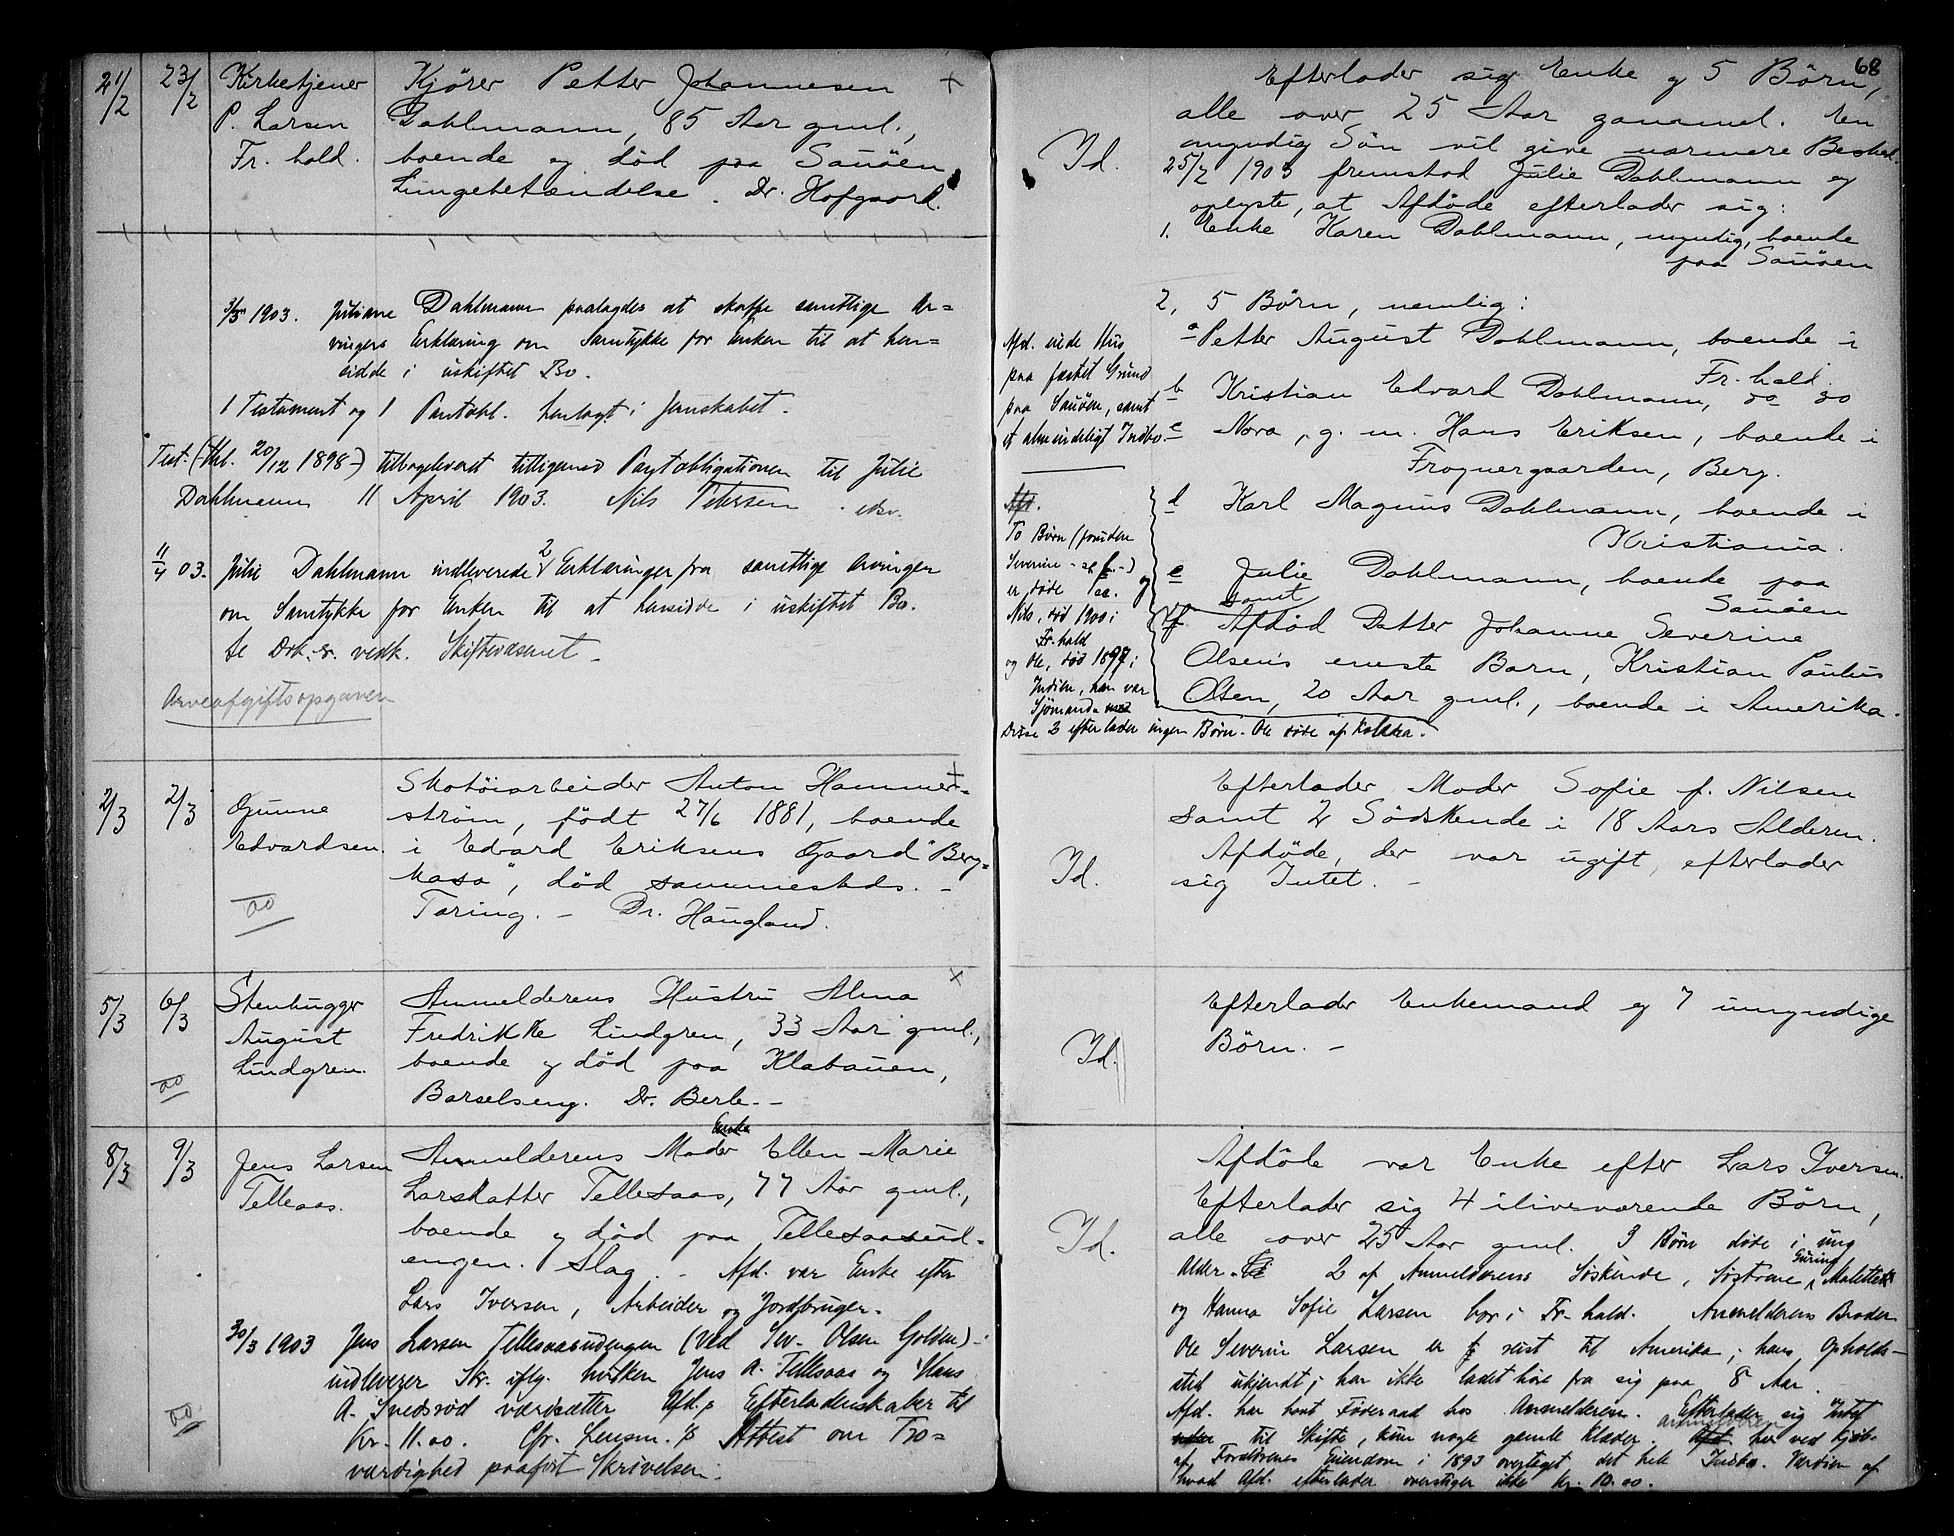 21/2 23/2 Kirketjener Kjører Petter Johannesen
P. Larsen Dahlmann, 85 Aar gml.,
Fr.hald. boende og död paa Sauöen
Lungebetændelse. Dr. Hofgaard.
3/3 1903. Juliane Dahlmann paalagdes at skaffe samtlige Ar-
vingers Erklæring om Samtykke for Enken til at hen-
sidde i uskiftet Bo.
1 Testament og 1 Pantobl. henlagt i Jernskabet.
Test. (thl. 20/12 1898) tilbageleveret tilligemed Pantobligationen til Julie
Dahlmann 11 April 1903. Nils Petersen
11/4 03. Julie Dahlmann indleverede 2 Erklæringer fra samtlige Arvinger
om Samtykke for Enken til at hensidde i uskiftet Bo.
se Dok. vedk. Skiftevæsenet
Arveafgiftsopgaven
2/3 2/3 Gunne Edvardsen. Skotöiarbeider Anton Hammer-
ström, födt 27/6 1881, boende
i Edvard Eriksens Gaard "Berg-
hasa", död sammesteds. -
Tæring. - Dr. Haugland.
5/3 6/3 Stenhugger Anmelderens Hustru Alma
August Fredrikke Lindgren, 33 Aar gml.,
Lindgren. boende og död paa Klabauen,
Barselseng. Dr. Berle. -
8/3 9/3 Jens Larsen Anmelderens Moder Enke Ellen Marie
Tellesaas. Larsdatter Tellesaas, 77 Aar gml.,
boende og död paa Tellesaasud-
engen. Slag. - Afd. var Enke efter
Lars Iversen, Arbeider og Jordbruger.
30/3 1903 Jens Larsen Tellesaasudengen (ved Sev. Olsen Golden)
indleverer Skr. iflg. hvilken Jens A. Tellesaas og Hans
A. Svedsrød værdsætter Afd.s Efterladenskaber til
Kr. 11.00. Cfr. Lensm.s Attest om Tro-
værdighed paaført Skrivelsen.
68
Efterlader sig Enke og 5 Börn,
alle over 25 Aar gammel. En
myndig Sön vil give nærmere Besked.
Id.
25/2 1903 fremstod Julie Dahlmann og
oplyste, at Afdöde efterlader sig:
1. Enke Karen Dahlmann, myndig, boende
paa Sauöen
2, 5 Börn, nemlig:
a Petter August Dahlmann, boende i
Fr.hald.
b Kristian Edvard Dahlmann, do do
c Nora, g. m. Hans Eriksen, boende i
Frognergaarden, Berg.
d Karl Magnus Dahlmann, boende i
Kristiania.
e Julie Dahlmann, boende paa
Sauöen
samt
f. Afdöd Datter Johanne Severine
Olsens eneste Barn, Kristian Paulus
Olsen, 20 Aar gml., boende i Amerika.
Afd. eiede Hus
paa fæstet Grund
paa Sauöen, samt
et almindeligt Indbo
To Børn (foruden
Severine - se f. -)
er døde
Nils, død 1900 i
Fr.hald
og Ole, død 1897 i
Indien, han var
Sjømand
Disse 2 efterlader ingen Børn. Ole døde af Kolera.
Id.
Efterlader Moder Sofie f. Nilsen
samt 2 Södskende i 18 Aars Alderen.
Afdöde, der var ugift, efterlader
sig Intet. -
Id.
Efterlader Enkemand og 7 umyndige
Börn. -
Id.
Afdöde var Enke efter Lars Iversen.
Efterlader sig 4 ilivevæende Börn,
alle over 25 Aar gml. 3 Børn døde i ung
Alder. 2 af Anmelderens Søskende, Søstrene Guring Malette
og Hanna Sofie Larsen bor i Fr.hald. Anmelderens Broder
Ole Severin Larsen er reist til Amerika; hans Opholds-
sted ukjendt; har ikke ladet høre fra sig paa 8 Aar.
Afd. har havt Føderaad hos Anmelderen. Efterlader sig Intet
til Skifte, kun nogle gamle Klæder. Anmelderen har ved Kjøb
af Forældrenes Eiendom i 1893 overtaget det hele Indbo. Værdien af
hvad Afd. efterlader overstiger ikke Kr. 10.00.